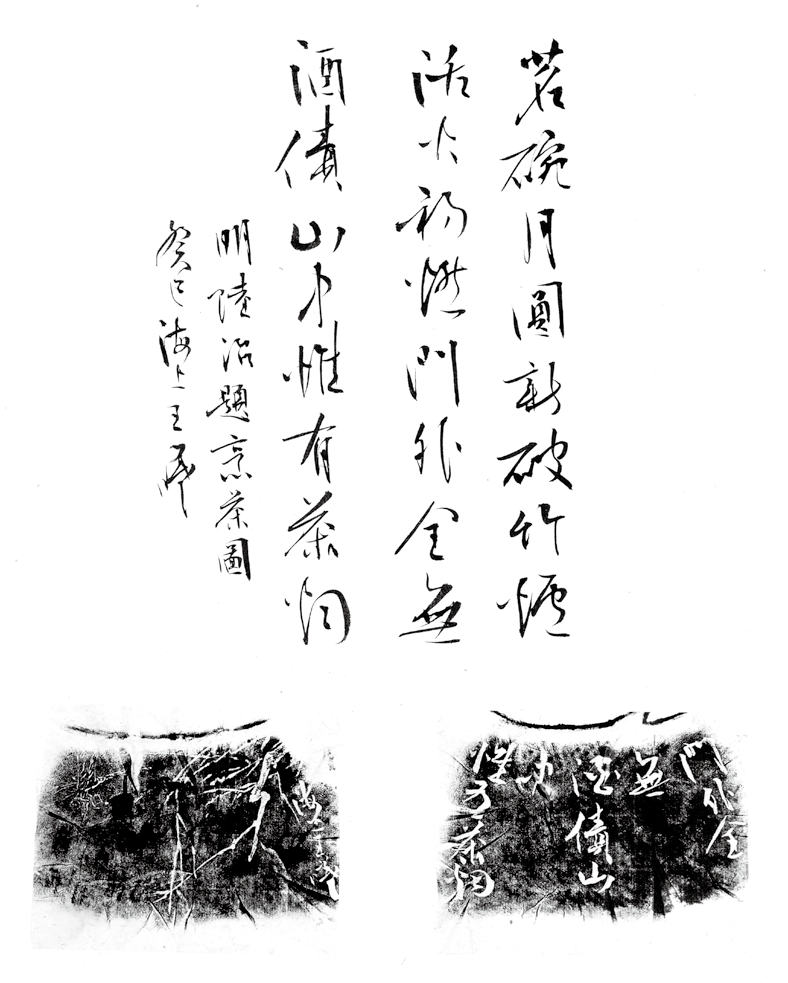 茗碗月圓新破竹爐
活火初燃門外全無
酒債山中惟有茶烟
明陸治題烹茶圖
癸巳海上王
門外全
無
酒債山
中
惟有茶烟
海上